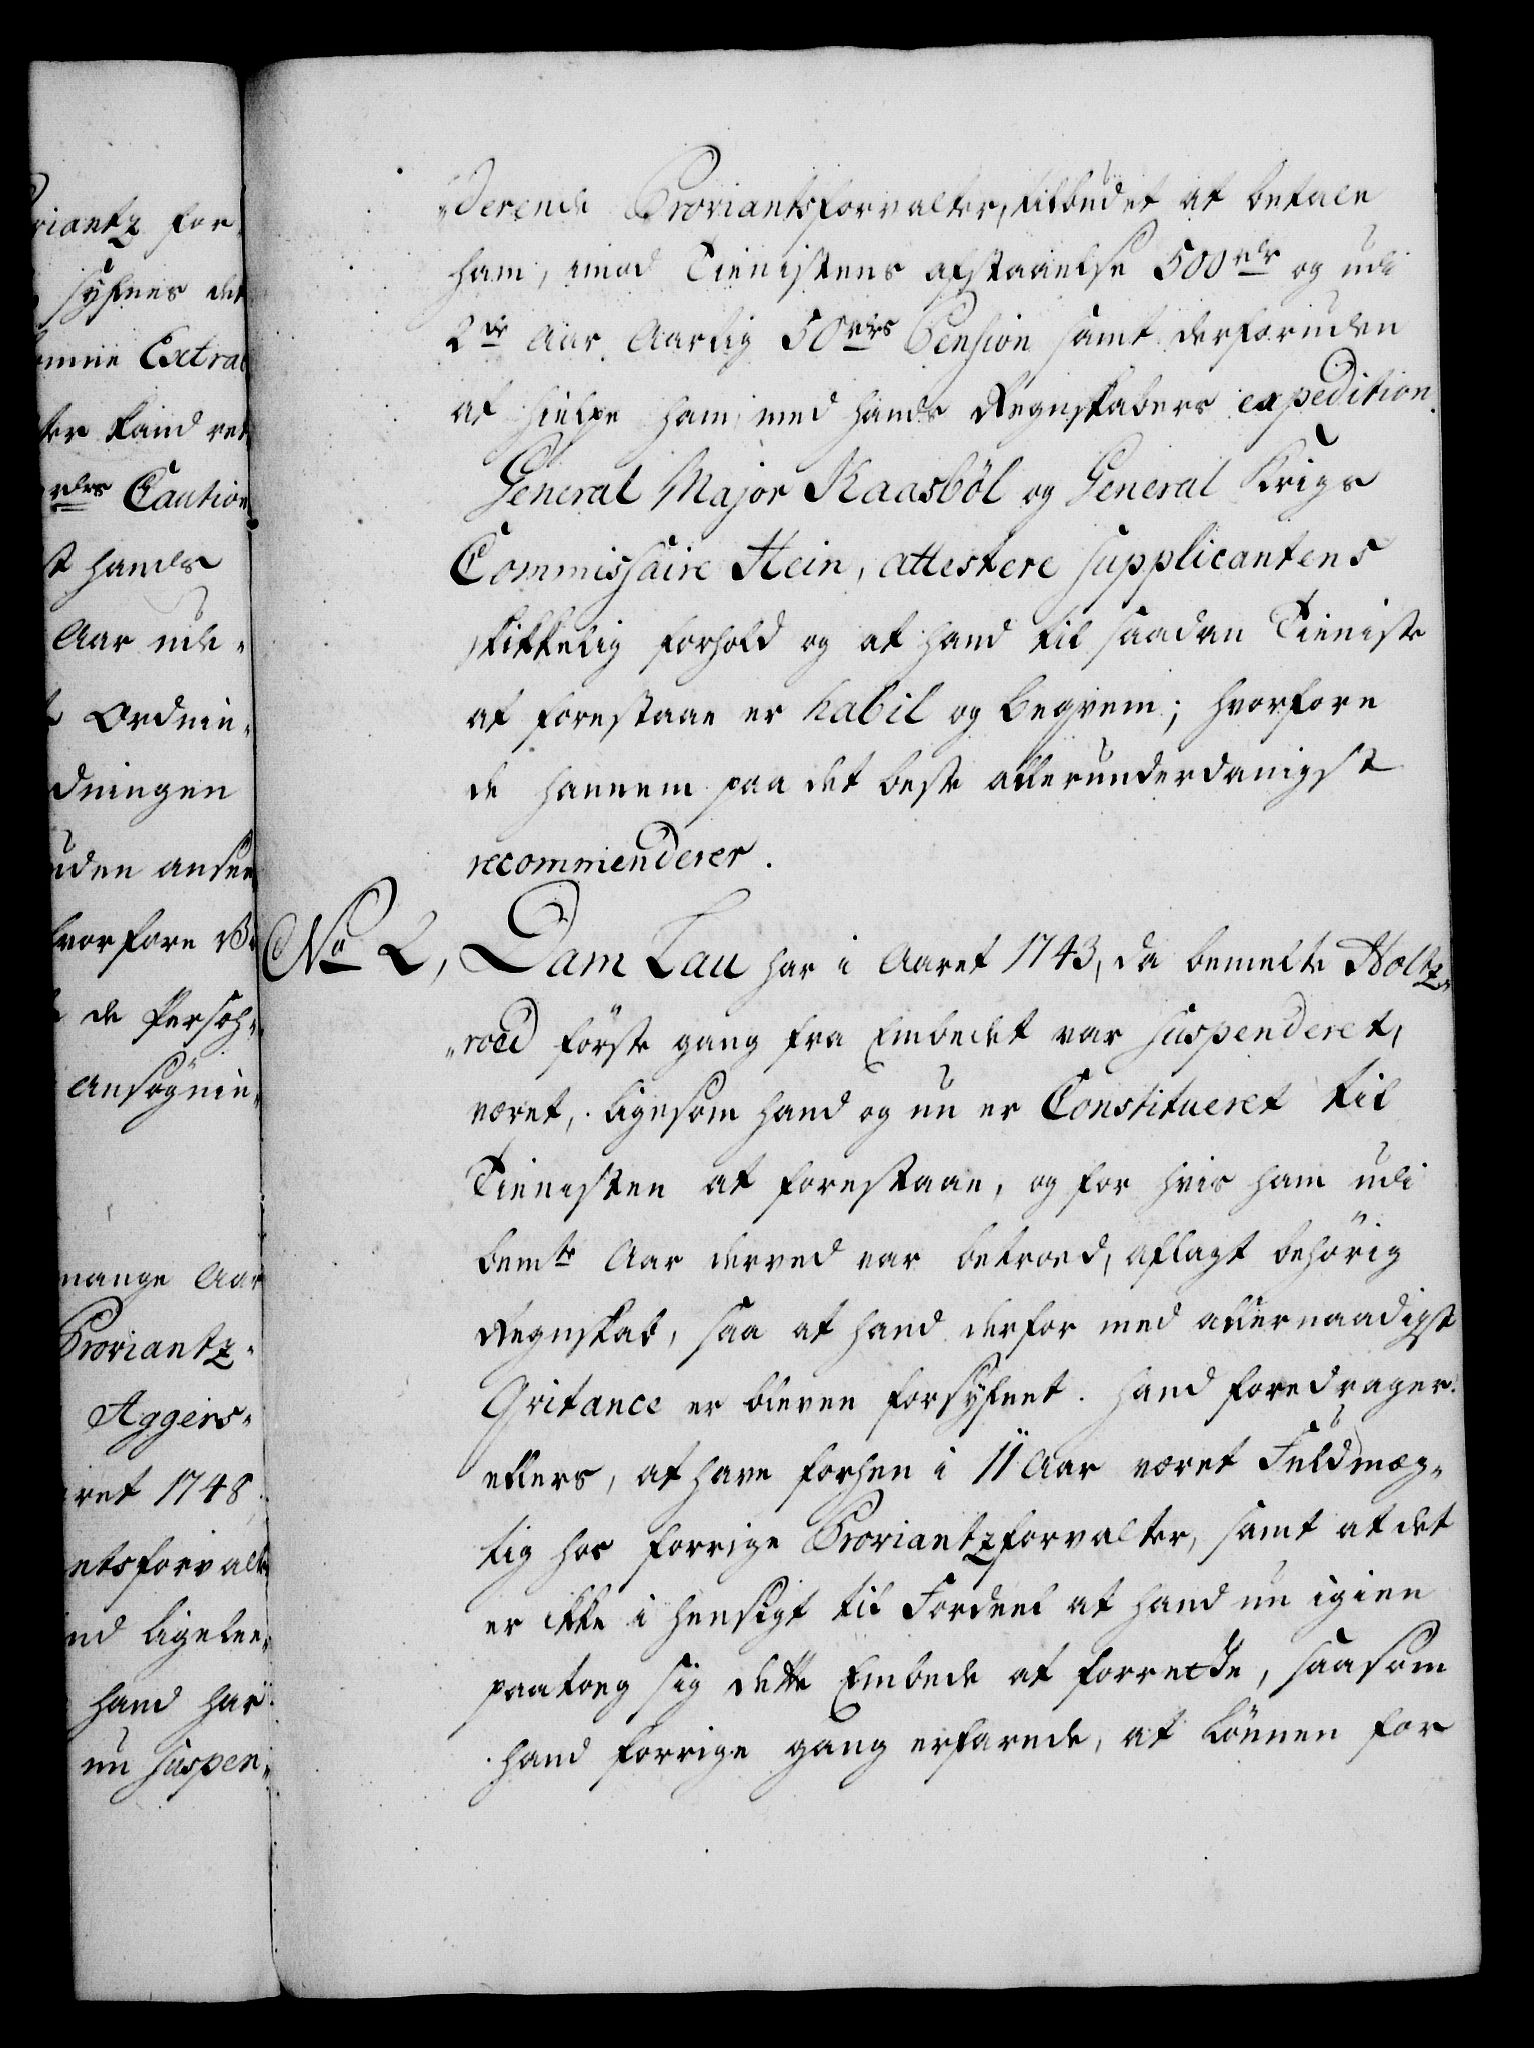 riantz for¬
sÿfnes det
omme Extrac
ter kand ret
rdrs Caution
st hands
Aar ude¬
Ordnin¬
dningen
uden ansee
hvorfore
de Persoh¬
ansøgnin¬
mange Aar
Proviantz¬
Aggers¬
ret 1748
ntsforvalt
nd ligelee¬
hand har
nu suspen¬
„derende Proviantsforvalter, tilbudet at betale
ham, imod Tienistens afstaaelse 500rdr og udi
2de Aar Aarlig 50rdrs Pension samt desforuden
at hielpe ham med hands Regnskabers expedition.
General Major Kaasböl og General Krigs
Commissaire Hein, attestere supplicantens
skikkelig forhold og at hand til saadan Tieniste
at forestaae er habil og begvem; hvorfore
de hannem paa det beste allerunderdanigst
recommenderer.
No 2, Dam Lau har i Aaret 1743, da bemelte Holtz¬
„roed förste gang fra Embedet var suspenderet,
været, ligesom hand og nu er Constitueret til
Tienisten at forestaae, og for hvis ham udi
bemte Aar derved var betroed, aflagt behörig
Regnskab, saa at hand derfor med allernaadigst
Qvitance er bleven forsÿfnet. Hand foredrager
ellers, at have forhen i 11 Aar været Fuldmæg¬
tig hos forrige Proviantzforvalter, samt at det
er ikke i hensigt til Fordeel at hand nu igien
paatoeg sig dette Embede at forrette, saasom
hand forrige gang erfarede, at Lönnen for